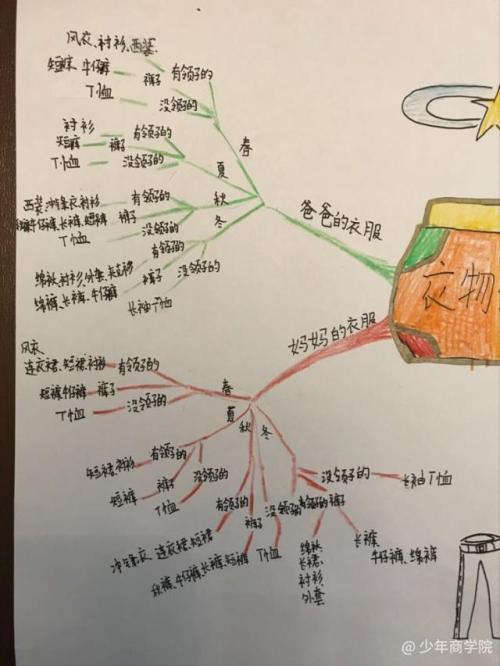 风衣、衬衫、西装
短裤、牛仔裤 裤子 有领子的
T恤 没领子的
春
衬衫 有领子的
短裤 裤子
T恤 没领子的
夏
西装、冲锋衣、衬衫 有领子的
牛仔裤、长裤、短裤 裤子
T恤 没领子的
秋
冬
有领子的
棉袄、衬衫、外套
裤子 没领子的
棉裤、长裤、牛仔裤
长袖T恤
爸爸的衣服
衣物
妈妈的衣服
风衣
连衣裙、短裙、衬衫 有领子的
短裤、牛仔裤 裤子
T恤 没领子的
春
夏
秋 冬
短裙、衬衫 有领子的
短裤 裤子
T恤 没领子的
有领子的
冲锋衣、连衣裙、短裙
裤子
秋裤、牛仔裤、长裤、短裤
没领子的
T恤
有领子的
棉袄
长裙
衬衫
外套
裤子
长裤
牛仔裤、棉裤
没领子的
长袖T恤
@少年商学院